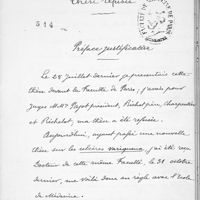 Thèse refusée
514
Préface justificative
Le 28 Juillet dernier je présentais cette
thèse devant la Faculté de Paris, j'avais pour
Juges M.M. Pajot président, Richet, Charpentier
et Richelot, ma thèse a été refusée.
Aujourd'hui, ayant passé une nouvelle
thèse sur les ulcères variqueux, j'ai été reçu
Docteur de cette même Faculté le 31 octobre
dernier, me voilà donc en règle avec l'Ecole
de Médecine.